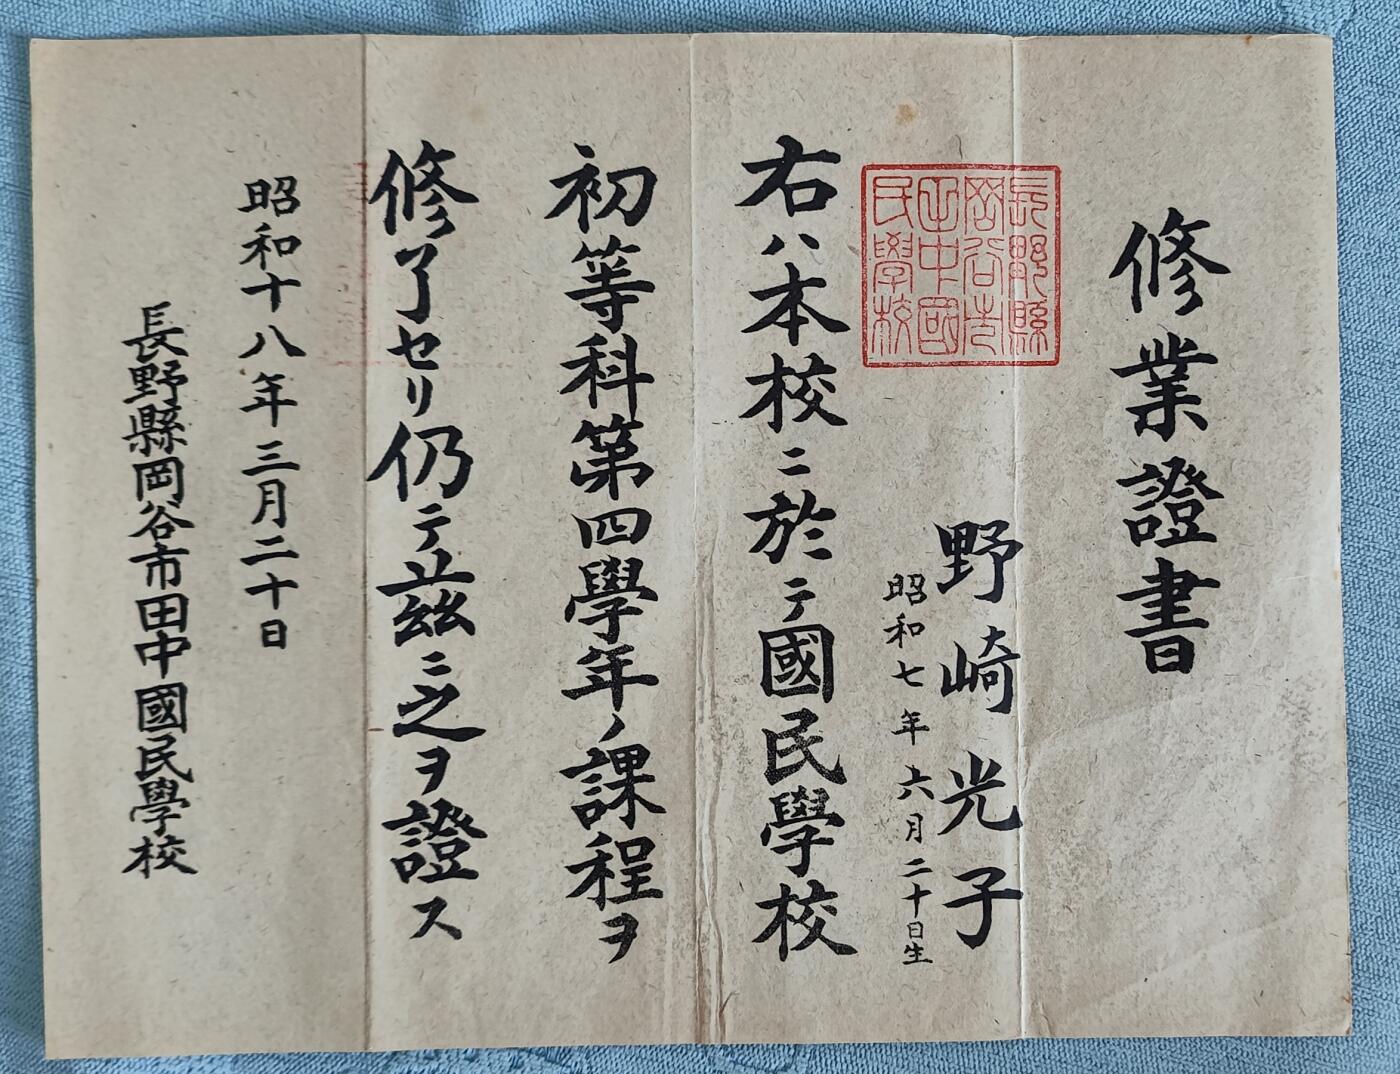 修業證書
長野縣
岡谷市
田中國
民學校
野崎光子
昭和七年六月二十日生
右ハ本校ニ於テ國民學校
初等科第四學年ノ課程ヲ
修了セリ仍テ茲ニ之ヲ證ス
昭和十八年三月二十日
長野縣岡谷市田中國民學校